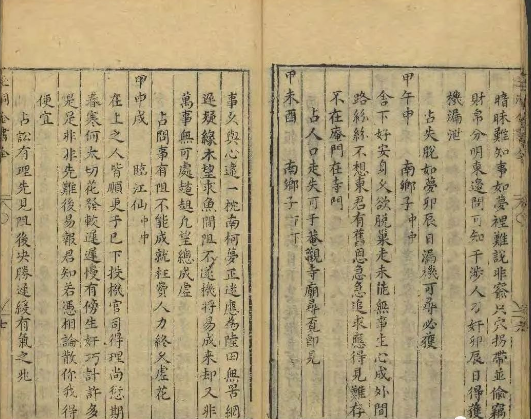 暗昧難知事如夢裡難說非察只穴拐帶並偷竊
財帛分明東邊問可知干涉人刁奸卯辰日得獲
機漏泄
占失脫如夢卯辰日漏機可尋必獲
甲午申 南鄉子 中中
含下好安身久欲脫巢走未能無事生心成外間
路絲絲不想東君有舊恩急急追求應得見難存
不在庵門在寺門
占人口走失可于菴觀寺廟尋覓即見
甲未酉 南鄉子 下下
事久與心違一枕南柯夢正遠應為陸田無罟網
遲疑緣木望求魚間阻不通機將易成來却又非
萬事無可處趑趄凡望總成虛
占問事有阻不能成就枉費人力終久虛花
甲申戌 臨江仙 中中
在上之人皆順更子巳下扶機官司得理尚愆期
春寒何太切花發較遲遲慢有傍生奸巧計許多
是是非非先難後易報君知若憑相論散你我得
便宜
占訟有理先見阻後決勝遲緩有氣之兆